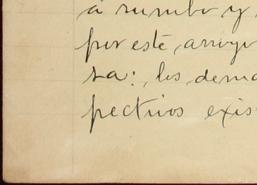 á rumbo y
por este arroyo
sa:, los dema
pectivos exis